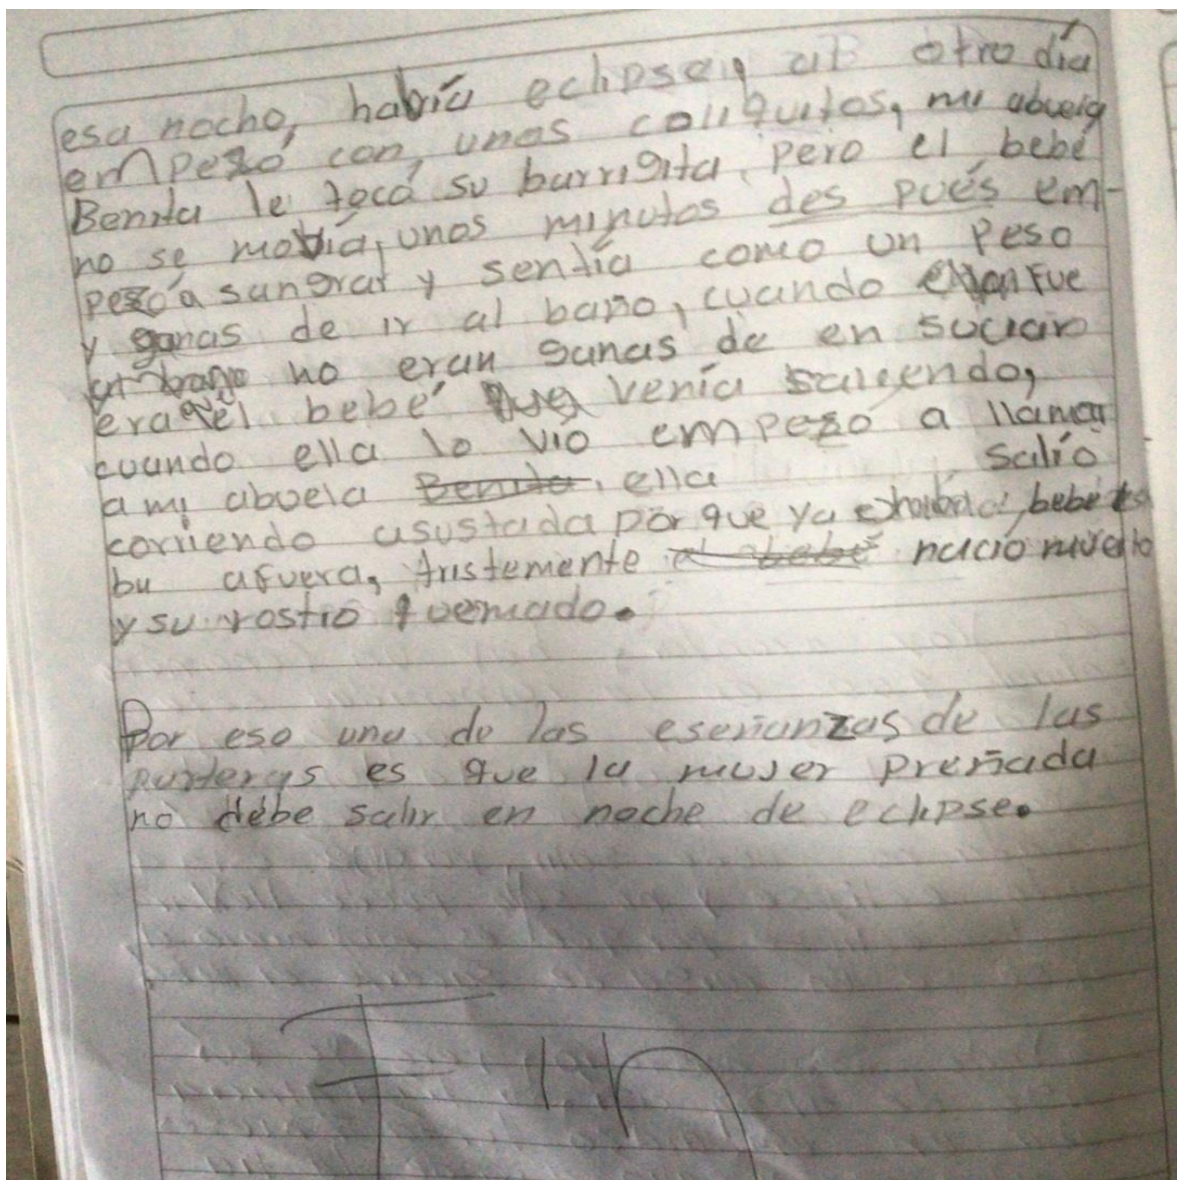 esa nocho, había eclipse, al otro día
empezó con, unos coliguitos, mi abuela
Benita le tocó su barrigita, pero el bebé
no se movía, unos minutos des pués em-
pezó a sangrar y sentía como un peso
y ganas de ir al baño, cuando fue
no eran ganas de en suciar
era el bebé que venía saliendo,
cuando ella lo vió empezó a llamar
a mi abuela Benita, ella salió
corriendo asustada por que ya bebé
ba afuera, tristemente el bebé nació muerto
y su rostro quemado.
Por eso una de las eseñanzas de las
parteras es que la mujer preñada
no debe salir en noche de eclipse.
Fin